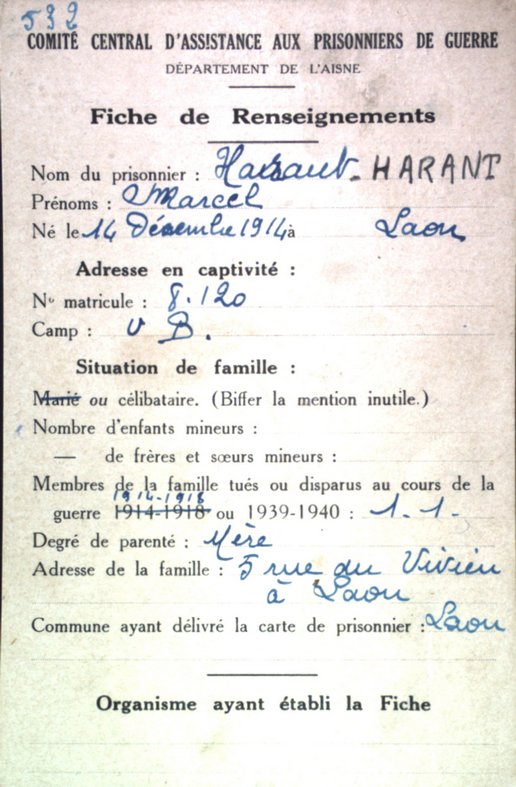 532
COMITÉ CENTRAL D'ASSISTANCE AUX PRISONNIERS DE GUERRE
DÉPARTEMENT DE L'AISNE
Fiche de Renseignements
Nom du prisonnier : Harant - HARANT
Prénoms : Marcel
Né le 14 Décembre 1914 à Laon
Adresse en captivité :
No matricule : 8.120
Camp : V B.
Situation de famille :
Marié ou célibataire. (Biffer la mention inutile.)
Nombre d'enfants mineurs :
— de frères et sœurs mineurs :
Membres de la famille tués ou disparus au cours de la
1914-1918
guerre 1914-1918 ou 1939-1940 : 1.1.
Degré de parenté : Mère
Adresse de la famille : 5 rue du Vivien
à Laon
Commune ayant délivré la carte de prisonnier : Laon
Organisme ayant établi la Fiche